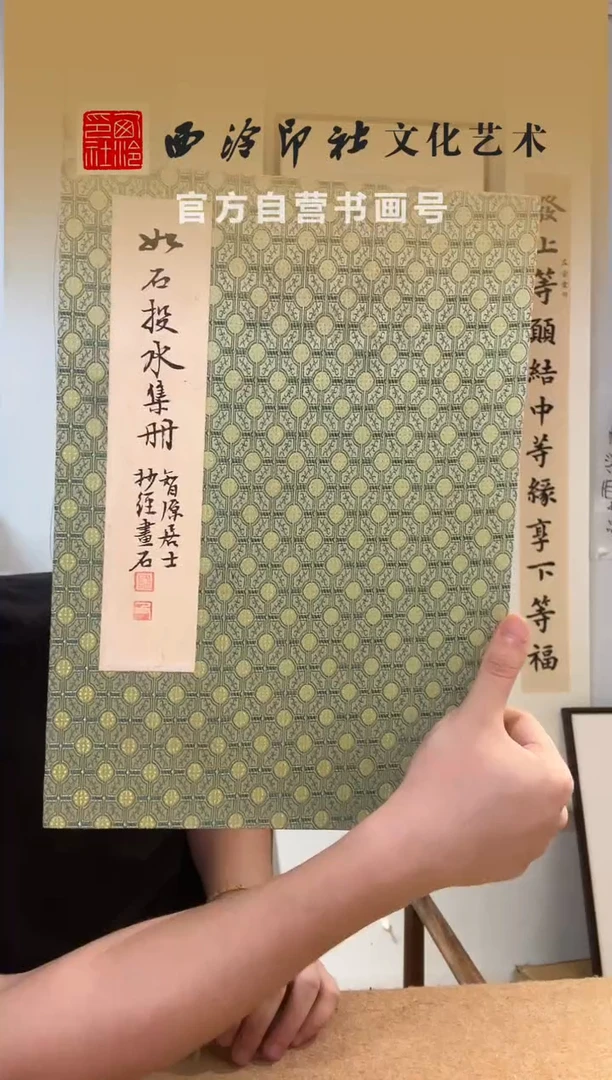 西泠印社
西泠印社文化艺术
官方自营书画号
如石投水集册
智原居士
抄經畫石
發上等願結中等緣享下等福